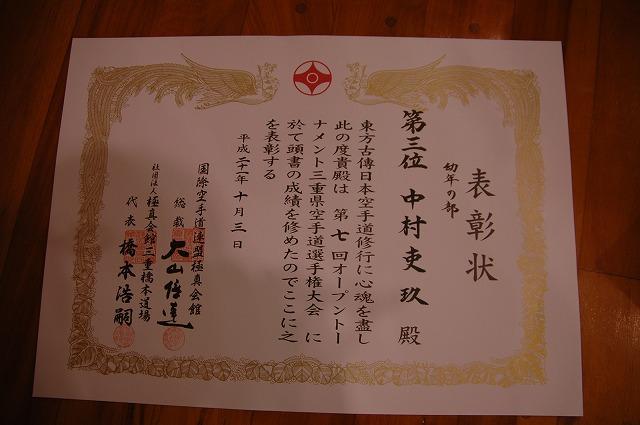 表彰状
幼年の部
第三位 中村吏玖 殿
東方古傳日本空手道修行に心魂を盡し
此の度貴殿は 第七回オープントー
ナメント三重県空手道選手権大会 に
於て頭書の成績を修めたのでここに之
を表彰する
平成二十一年十月三日
国際空手道連盟極真会館
総裁 大山倍達
社団法人極真会館三重橋本道場
代表 橋本浩嗣